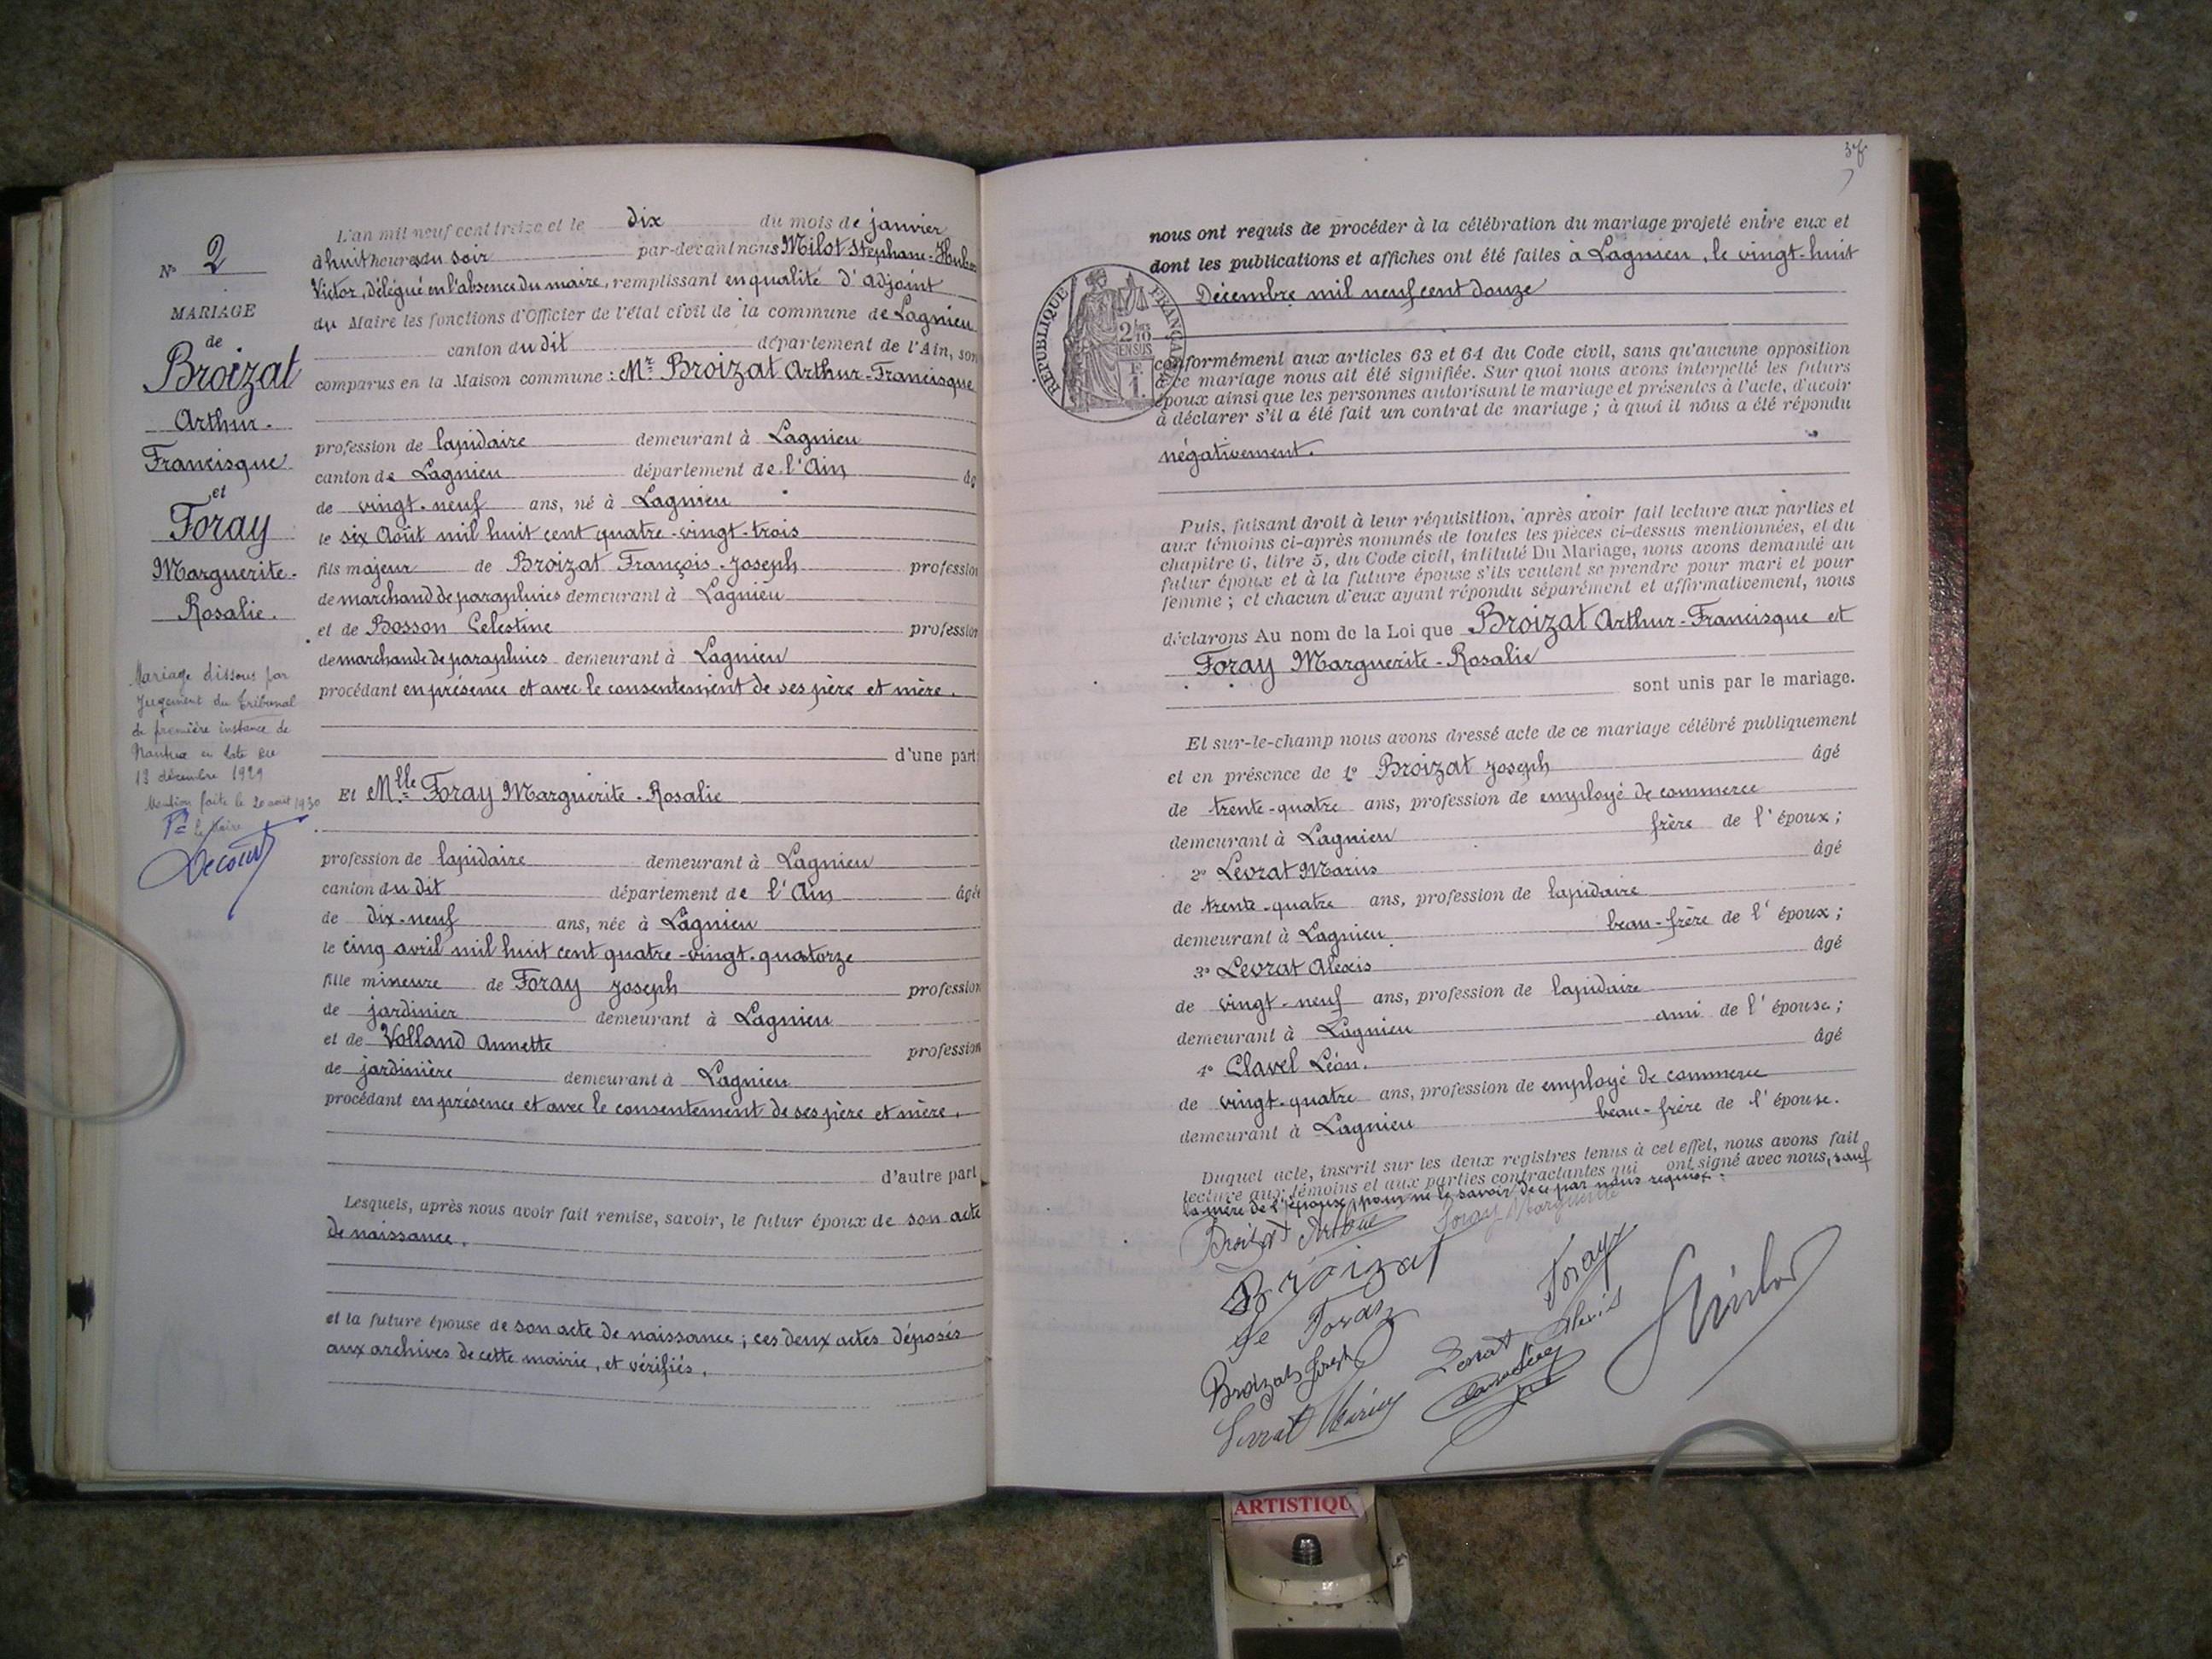 N° 2
MARIAGE
de
Broizat
Arthur-
Francisque
et
Foray
Marguerite-
Rosalie.
Mariage dissous par
Jugement du Tribunal
de première instance de
Nantua en date du
13 décembre 1929
Mention faite le 20 août 1930
Pr le Maire
Decourt
L'an mil neuf cent treize et le dix du mois de janvier
à huit heures du soir par-devant nous Milot Stéphane-
Victor, délégué en l'absence du maire, remplissant en qualité d'adjoint
du Maire les fonctions d'Officier de l'état civil de la commune de Lagnieu
canton du dit département de l'Ain, son
comparus en la Maison commune : Mr Broizat Arthur-Francisque
profession de lapidaire demeurant à Lagnieu
canton de Lagnieu département de l'Ain
de vingt-neuf ans, né à Lagnieu
le six Août mil huit cent quatre-vingt-trois
fils majeur de Broizat François-Joseph profession
de marchand de parapluies demeurant à Lagnieu
et de Bosson Celestine profession
de marchande de parapluies demeurant à Lagnieu
procédant en présence et avec le consentement de ses père et mère.
d'une part
Et Mlle Foray Marguerite-Rosalie
profession de lapidaire demeurant à Lagnieu
canton du dit département de l'Ain âgée
de dix-neuf ans, née à Lagnieu
le cinq avril mil huit cent quatre-vingt-quatorze
fille mineure de Foray Joseph profession
de jardinier demeurant à Lagnieu
et de Volland Annette profession
de jardinière demeurant à Lagnieu
procédant en présence et avec le consentement de ses père et mère.
d'autre part
Lesquels, après nous avoir fait remise, savoir, le futur époux de son acte
de naissance.
et la future épouse de son acte de naissance ; ces deux actes déposés
aux archives de cette mairie, et vérifiés.
nous ont requis de procéder à la célébration du mariage projeté entre eux et
dont les publications et affiches ont été faites à Lagnieu, le vingt-huit
Décembre mil neuf cent douze
RÉPUBLIQUE FRANÇAISE
2/10
EN SUS
F.
1.
conformément aux articles 63 et 64 du Code civil, sans qu'aucune opposition
à ce mariage nous ait été signifiée. Sur quoi nous avons interpellé les futurs
époux ainsi que les personnes autorisant le mariage et présentes à l'acte, d'avoir
à déclarer s'il a été fait un contrat de mariage ; à quoi il nous a été répondu
négativement.
Puis, faisant droit à leur réquisition, après avoir fait lecture aux parties et
aux témoins ci-après nommés de toutes les pièces ci-dessus mentionnées, et du
chapitre 6, titre 5, du Code civil, intitulé Du Mariage, nous avons demandé au
futur époux et à la future épouse s'ils veulent se prendre pour mari et pour
femme ; et chacun d'eux ayant répondu séparément et affirmativement, nous
déclarons Au nom de la Loi que Broizat Arthur-Francisque et
Foray Marguerite-Rosalie
sont unis par le mariage.
Et sur-le-champ nous avons dressé acte de ce mariage célébré publiquement
et en présence de 1° Broizat Joseph âgé
de trente-quatre ans, profession de employé de commerce
demeurant à Lagnieu frère de l'époux ;
2° Levrat Marius âgé
de trente-quatre ans, profession de lapidaire
demeurant à Lagnieu beau-frère de l'époux ;
3° Levrat Alexis âgé
de vingt-neuf ans, profession de lapidaire
demeurant à Lagnieu ami de l'épouse ;
4° Clavel Léon. âgé
de vingt-quatre ans, profession de employé de commerce
demeurant à Lagnieu beau-frère de l'épouse.
Duquel acte, inscrit sur les deux registres tenus à cet effet, nous avons fait
lecture aux témoins et aux parties contractantes qui ont signé avec nous, sauf
la mère de l'épouse, pour ne le savoir, de ce par nous requise.
Broizat Arthur Foray Marguerite
Broizat
Foray
Foray
Broizat Joseph
Levrat Alexis
Levrat Marius
ARTISTIQU